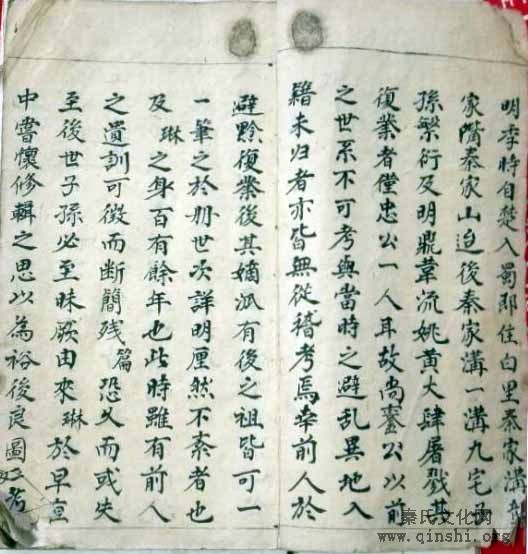 明季時自楚入蜀即住白里秦家溝
家嘴秦家山迨後秦家溝一溝九宅
孫繁衍及明鼎革流姚黃大肆屠戮其
復業者僅忠公一人耳故尚公以前
之世系不可考與當時之避乱異地入
籍未归者亦皆無從稽考焉幸前人於
避黔復業後其嫡派有後之祖皆可一
一筆之於册世次詳明厘然不紊者也
及琳之身百有餘年也此時雖有前人
之遺訓可徵而断簡残篇恐久而或失
至後世子孫必至昧厥由來琳於早重
中嘗懷修輯之思以為裕後良圖
秦氏文化网
www.qinshi.org